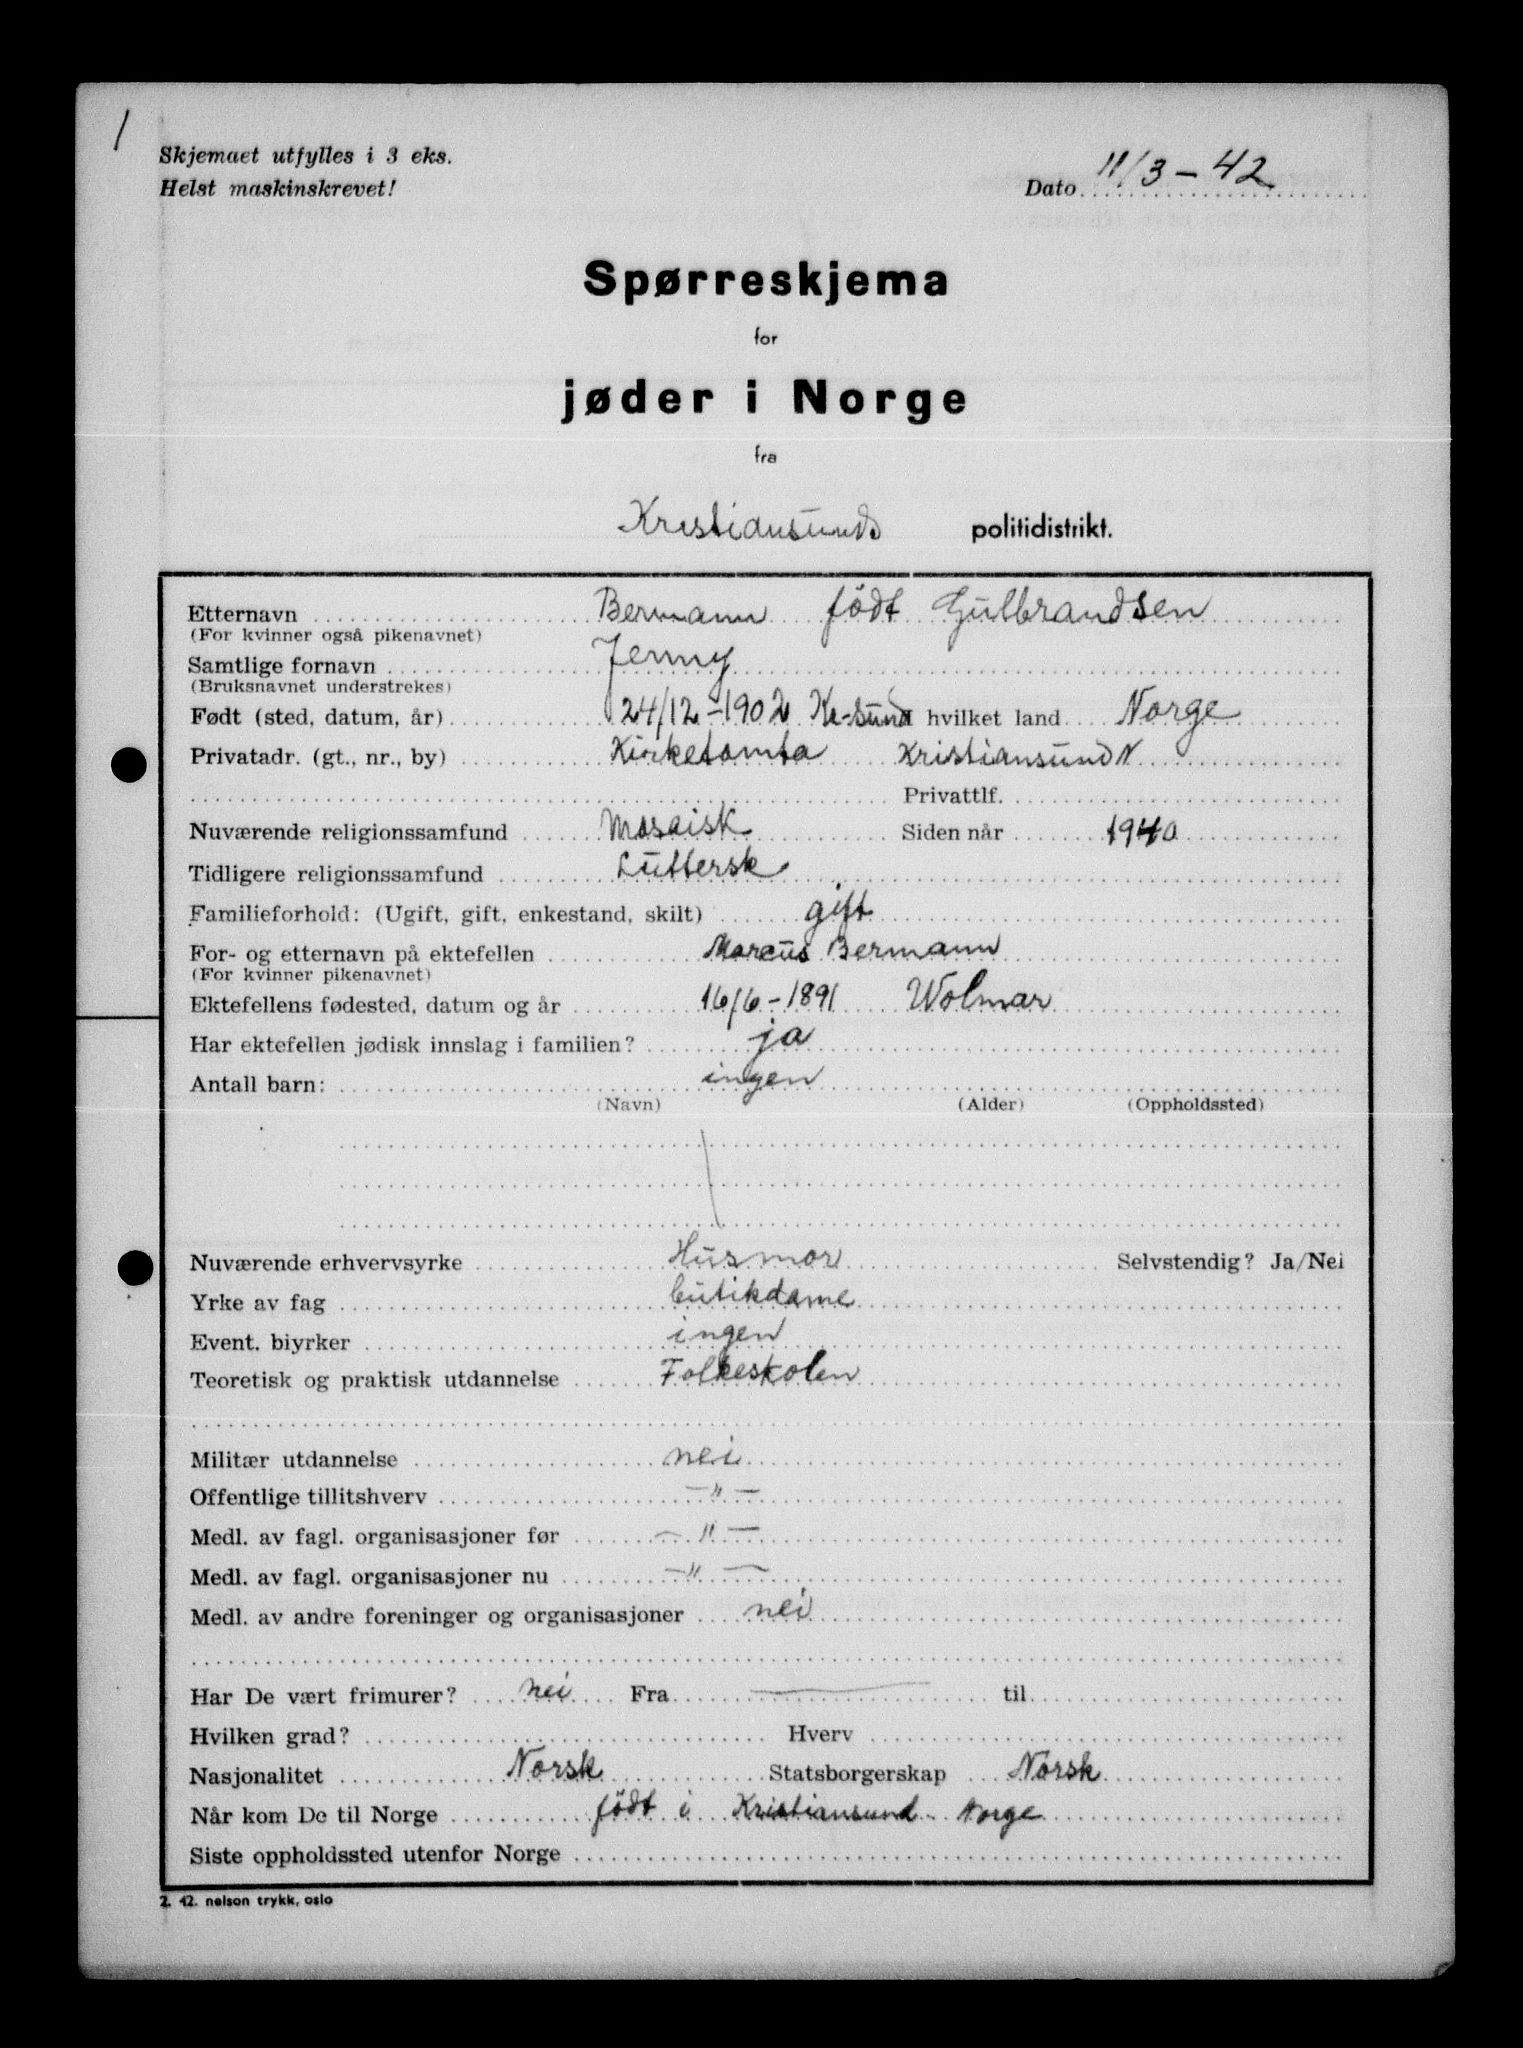 1
Skjemaet utfylles i 3 eks.
Helst maskinskrevet!
Dato 11/3 - 42
Spørreskjema
for
jøder i Norge
fra
Kristiansunds politidistrikt.
Etternavn Bermann födt Gulbrandsen
(For kvinner også pikenavnet)
Samtlige fornavn Jenny
(Bruksnavnet understrekes)
Født (sted, datum, år) 24/12 - 1902 Kr-sund hvilket land Norge
Privatadr. (gt., nr., by) Kirketomta Kristiansund N
Privattlf.
Nuværende religionssamfund Mosaisk Siden når 1940
Tidligere religionssamfund Luttersk
Familieforhold: (Ugift, gift, enkestand, skilt) gift
For- og etternavn på ektefellen Marcus Bermann
(For kvinner pikenavnet)
Ektefellens fødested, datum og år 16/6 - 1891 Wolmar
Har ektefellen jødisk innslag i familien? ja
Antall barn: ingen
(Navn) (Alder) (Oppholdssted)
Nuværende erhvervsyrke Husmor Selvstendig? Ja/Nei
Yrke av fag butikdame
Event. biyrker ingen
Teoretisk og praktisk utdannelse Folkeskolen
Militær utdannelse nei
Offentlige tillitshverv — " —
Medl. av fagl. organisasjoner før — " —
Medl. av fagl. organisasjoner nu — " —
Medl. av andre foreninger og organisasjoner nei
Har De vært frimurer? nei Fra — til
Hvilken grad? Hverv
Nasjonalitet Norsk Statsborgerskap Norsk
Når kom De til Norge födt i Kristiansund Norge
Siste oppholdssted utenfor Norge
2. 42. nelson trykk, oslo